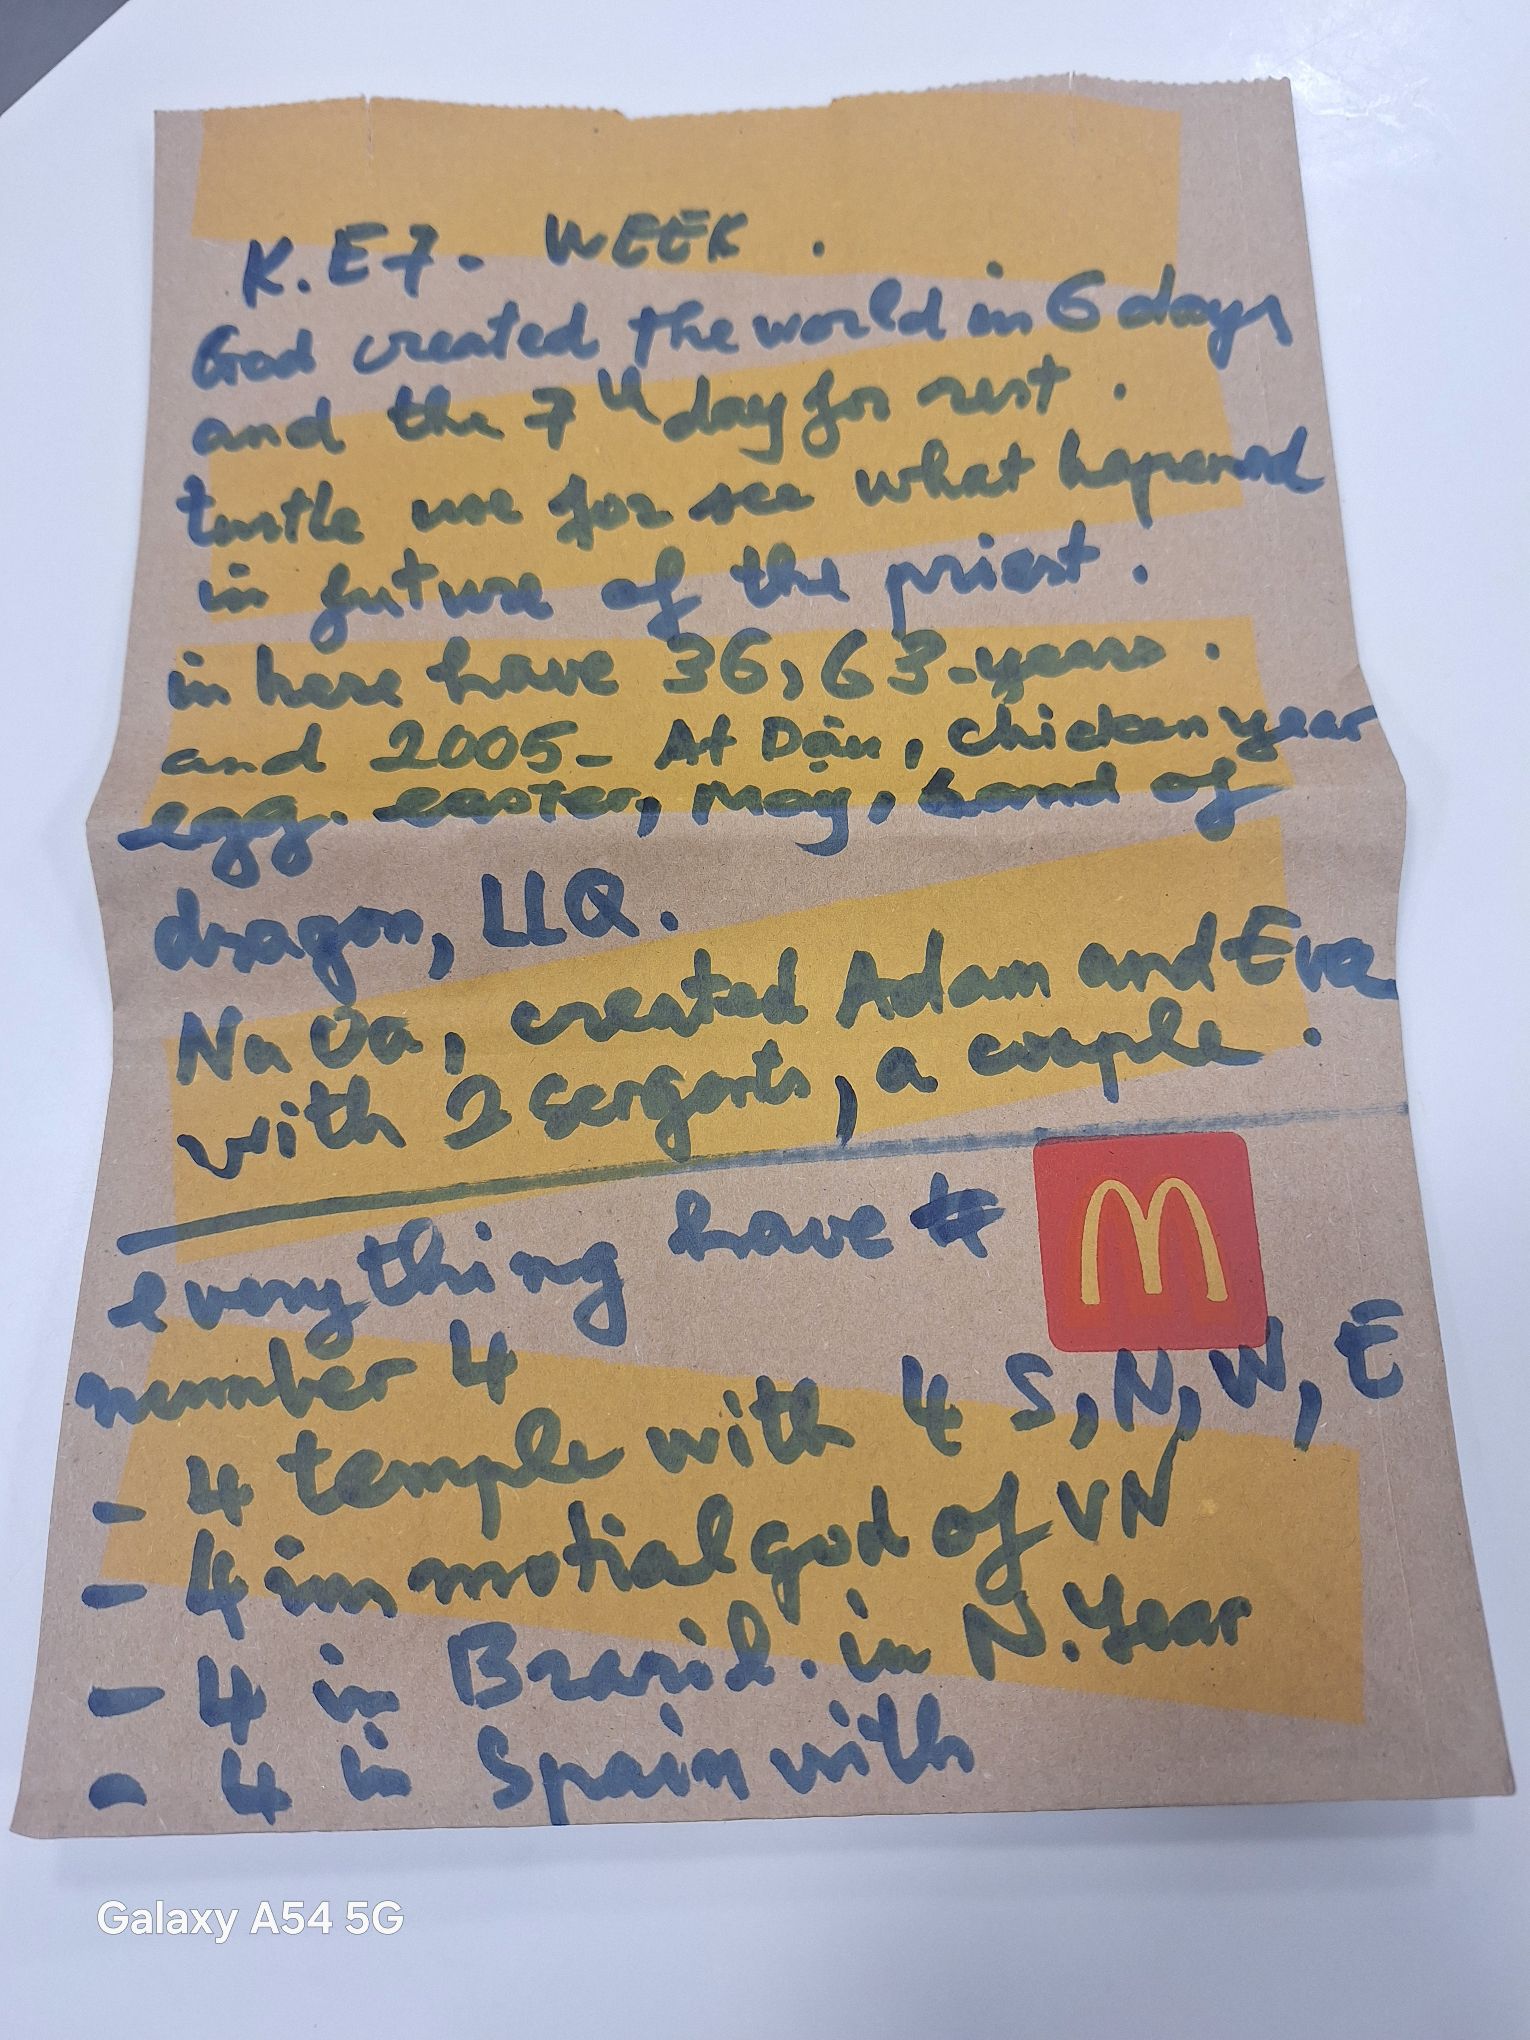 K.E7. WEEK.
God created the world in 6 days
and the 7th day for rest.
turtle use for see what hapened
in future of the priest.
in here have 36, 63-years.
and 2005- At Dậu, chicken year
egg. easter, May, band of
dragon, LLQ.
Nu Oa, created Adam and Eva
with 2 sergents, a couple.
everything have
number 4
- 4 temple with 4 S, N, W, E
- 4 im motial god of VN
- 4 in Brasil. in N.Year
- 4 in Spain with
Galaxy A54 5G